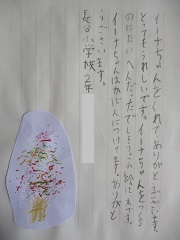 イーナちゃんをくれてありがとうございます。
とってもうれしいです。イーナちゃんをつくる
のはたいへんだったでしょう
イーナちゃんはかばんにつけてます。ありがと
うございます。
長谷小学校2年